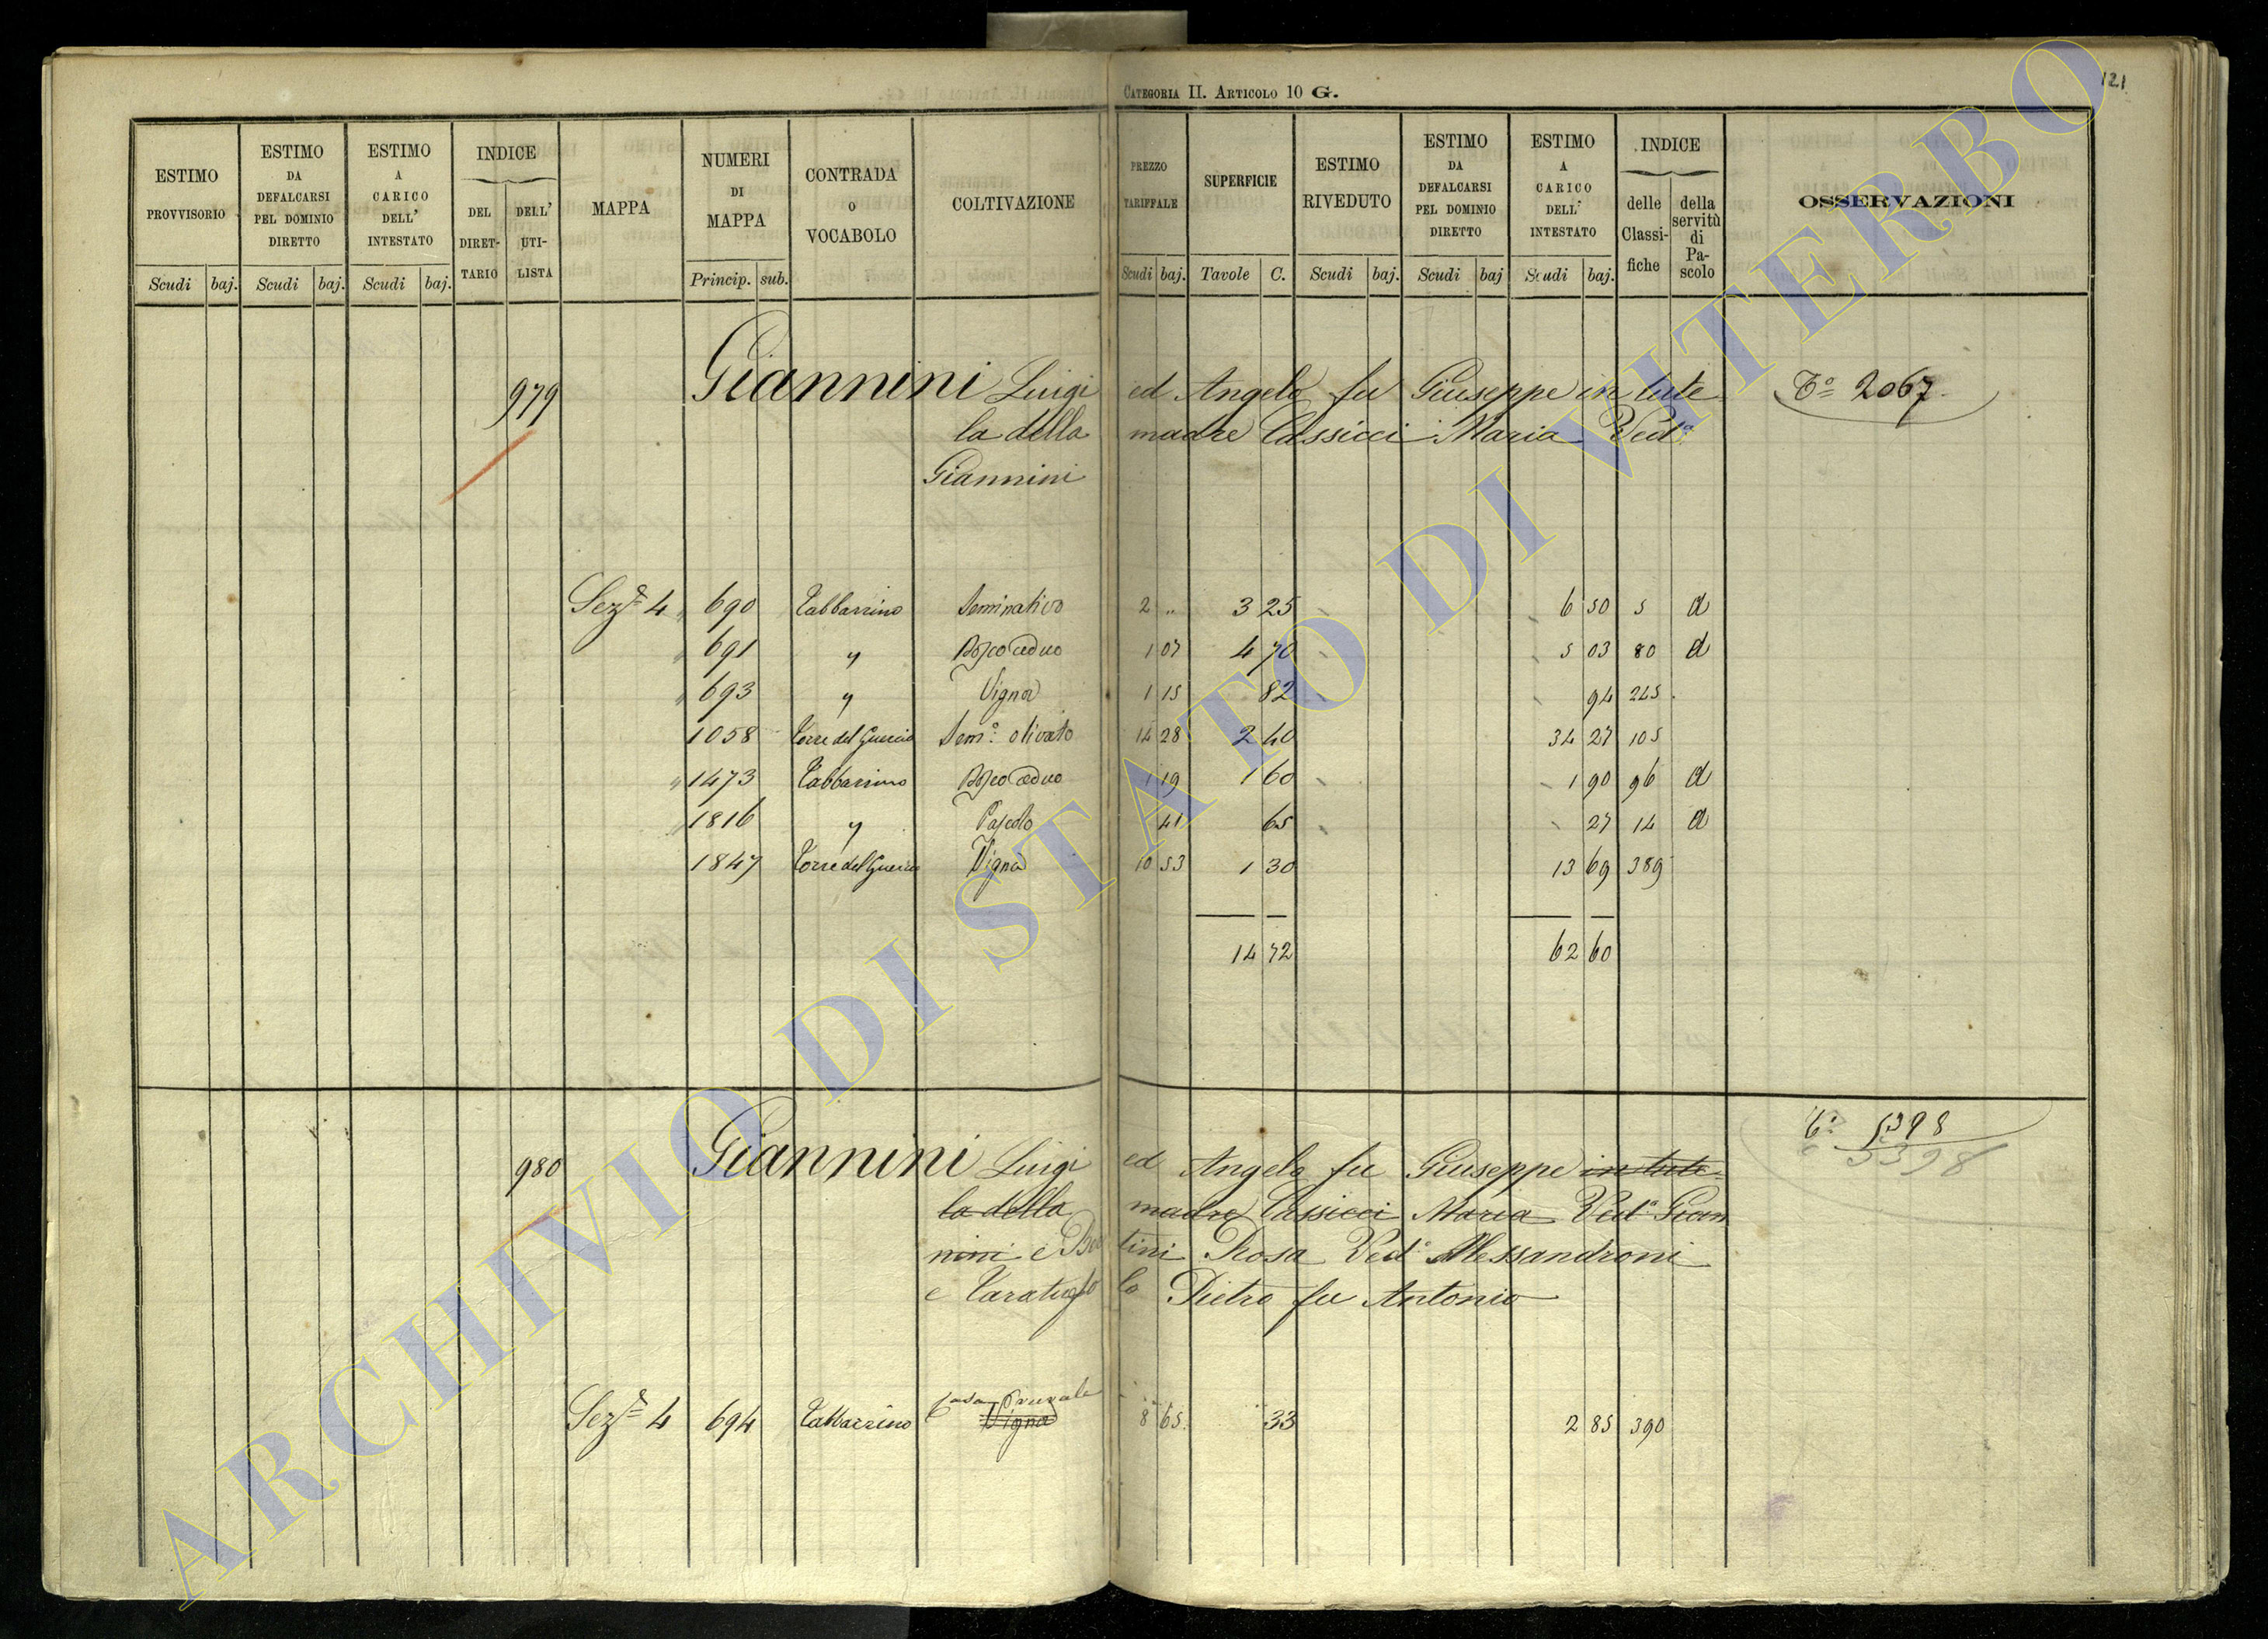 CATEGORIA II. ARTICOLO 10 G.
121
ESTIMO PROVVISORIO Scudi baj.
ESTIMO DA DEFALCARSI PEL DOMINIO DIRETTO Scudi baj.
ESTIMO A CARICO DELL' INTESTATO Scudi baj.
INDICE DEL DIRET-TARIO DELL' UTI-LISTA
MAPPA
NUMERI DI MAPPA Princip. sub.
CONTRADA O VOCABOLO
COLTIVAZIONE
PREZZO TARIFFALE Scudi baj.
SUPERFICIE Tavole C.
ESTIMO RIVEDUTO Scudi baj.
ESTIMO DA DEFALCARSI PEL DOMINIO DIRETTO Scudi baj
ESTIMO A CARICO DELL' INTESTATO Scudi baj.
INDICE delle Classi-fiche della servitù di Pa-scolo
OSSERVAZIONI
979 Giannini Luigi ed Angelo fu Giuseppe in tute To 2067
la della madre Cassicci Maria Veda
Giannini
Sezne 4 690 Tabbarrino Seminativo 2 " 3 25 6 50 5 d
" 691 " Bosco ceduo 1 07 4 70 5 03 80 d
" 693 " Vigna 1 15 82 94 245
1058 Torre del Guercio Semo olivato 14 28 2 40 34 27 105
" 1473 Tabbarrino Bosco ceduo 1 19 1 60 1 90 96 d
" 1816 " Pascolo 41 65 27 14 d
1847 Torre del Guercio Vigna 10 53 1 30 13 69 389
14 72 62 60
980 Giannini Luigi ed Angelo fu Giuseppe in tute To 5398
5398
la della madre Cassicci Maria Veda Gian
nini e Bu tini Rosa Veda Alessandroni
e Taratufo lo Pietro fu Antonio
Casa Prurale
Sezne 4 694 Tabbarrino Vigna 8 65 33 2 85 390
ARCHIVIO DI STATO DI VITERBO